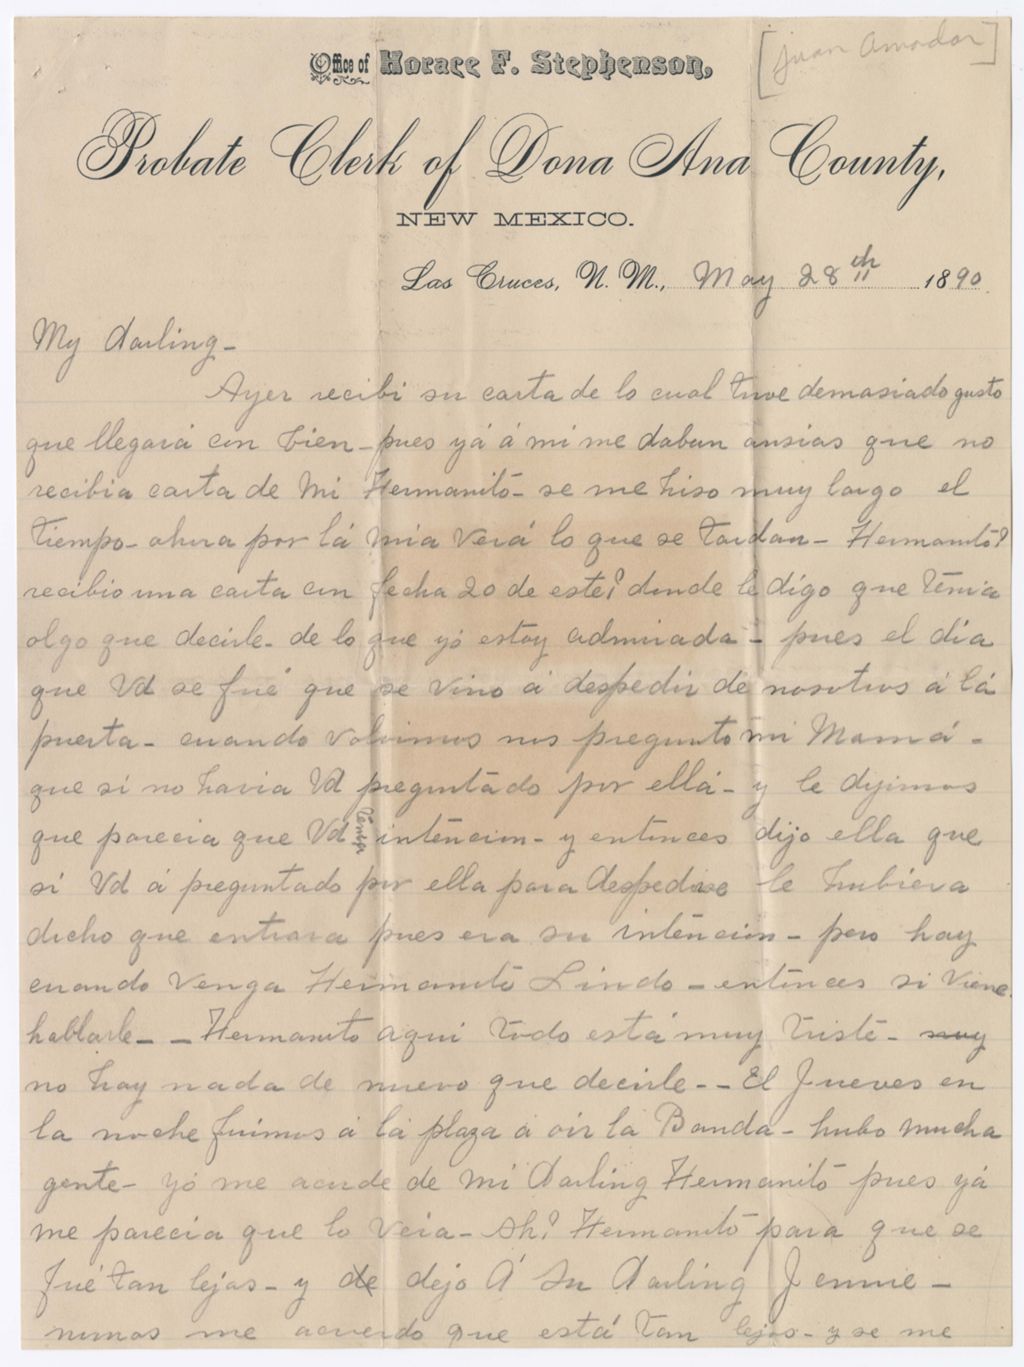 [Juan Amador]
Office of Horace F. Stephenson,
Probate Clerk of Dona Ana County,
NEW MEXICO.
Las Cruces, N. M., May 28th 1890
My darling-
Ayer recibi su carta de lo cual tuve demasiado gusto
que llegará con bien- pues yá á mi me daban ansias que no
recibia carta de Mi Hermanitó- se me hiso muy largo el
tiempo- ahura por lá mia verá lo que se tardan- Hermanitó?
recibio una carta con fecha 20 de este? donde le digo que tenia
algo que decirle- de lo que yó estoy admirada- pues el dia
que Vd se fué que se vino á despedir de nosotros á lá
puerta- cuando volvimos nos pregunto mi Mamá-
que si no havia Vd preguntádo por ellá- y le dijimos
que parecia que Vd tenia intencion- y entonces dijo ella que
si Vd á preguntado por ella para despedirse le hubiera
dicho que entrara pues era su intencion- pero hay
cuando venga Hermanitó Lindo- entonces si viene
hablarle-- Hermanito aqui todo está muy triste- muy
no hay nada de nuevo que decirle-- El Jueves en
la noche fuimos á lá plaza á oir la Banda- hubo mucha
gente- yó me acude de mi Darling Hermanitó pues yá
me parecia que lo veia- Ah! Hermanitó para que se
fué tan lejos- y de dejo Á Su Darling Jennie-
numas me acuerdo que está tan lejos- y se me